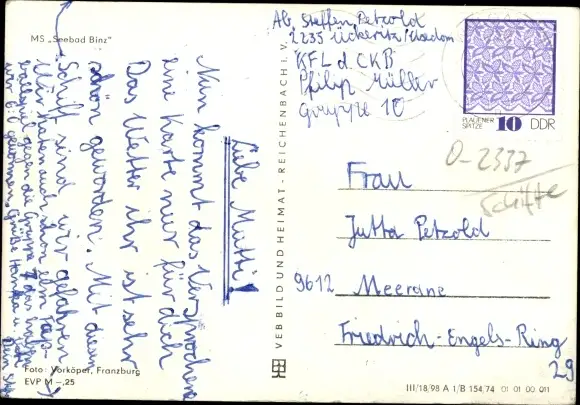 MS „Seebad Binz"
Liebe Mutti!
Nun kommt das Versprochene
eine Karte nur für dich
Das Wetter ihr ist sehr
schön geworden. Mit diesen
Schiff sind wir gefahren
Wir haben auch schon ein Fuß-
ballspiel gegen die Gruppe 7 das haben
wir 6:0 gewonnen. Grüße
Dein
Foto: Vorköper, Franzburg
EVP M –,25
VEB BILD UND HEIMAT · REICHENBACH i. V.
Ab. Steffen Petzold
2235 Ückeritz/Usedom
KFL d. CKB
Philip Müller
Gruppe 10
PLAUENER
SPITZE 10 DDR
0-2337
Frau
Jutta Petzold
9612 Meerane
Friedrich-Engels-Ring
29
III/18/98 A 1/B 154,74 01 01 00 011